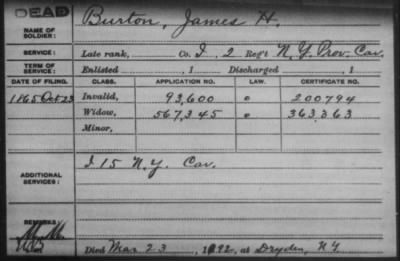 DEAD
NAME OF SOLDIER: Burton, James H.
SERVICE: Late rank, Co. I, 2 Reg't N.Y. Prov. Cav.
TERM OF SERVICE: Enlisted , 1 Discharged , 1
DATE OF FILING. CLASS. APPLICATION NO. LAW. CERTIFICATE NO.
1865 Oct 23 Invalid, 93,600 200794
Widow, 567,345 363,363
Minor,
ADDITIONAL SERVICES: I 15 N.Y. Cav.
REMARKS:
Died Mar 23, 1892, at Dryden, NY